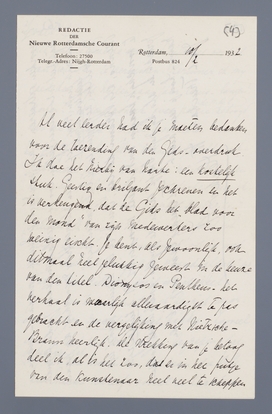 (4)
REDACTIE
DER
Nieuwe Rotterdamsche Courant
Telefoon: 27500
Telegr.-Adres: Nijgh-Rotterdam
Rotterdam, 10/2 1932
Postbus 824
Al veel eerder had ik je moeten bedanken
voor de toezending van den Gids-overdruk
Ik doe het hierbij van harte: een kostelijk
stuk. Geestig en briljant geschreven en het
is verheugend, dat de Gids het blad voor
den mond van zijn medewerkers zoo
weinig zoekt. Je bent, als gewoonlijk, ook
ditmaal heel gelukkig geweest in de keuze
van den titel. Dionysos en Pentheus. het
verhaal is alleraardigst te pas
gebracht en de vergelijking met Nietzsche-
heerlijk. De van je betoog
deel ik, al is het zoo, dat er in het
van den kunstenaar heel veel te scheppen